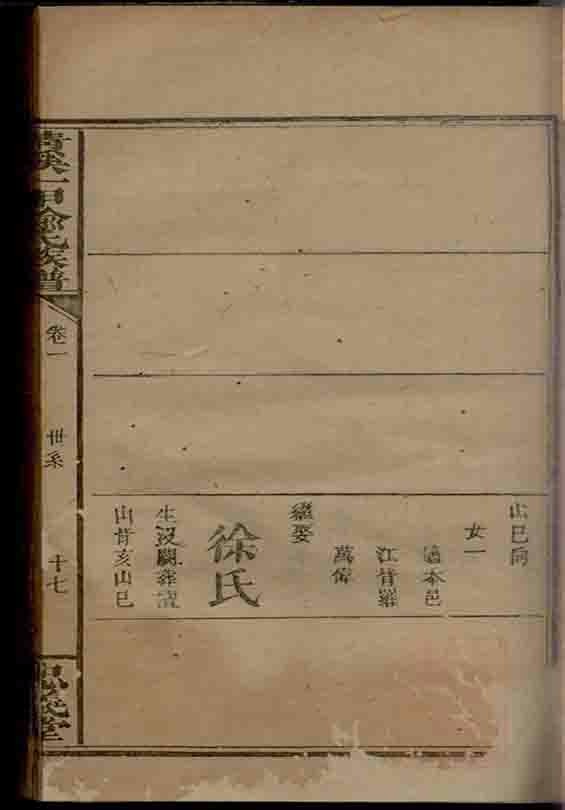 山巳向
女一
適本邑
江背羅
萬偉
繼娶
徐氏
生沒闕葬
山背亥山巳
青溪一甲徐氏族譜
卷一
世系
十七
堂